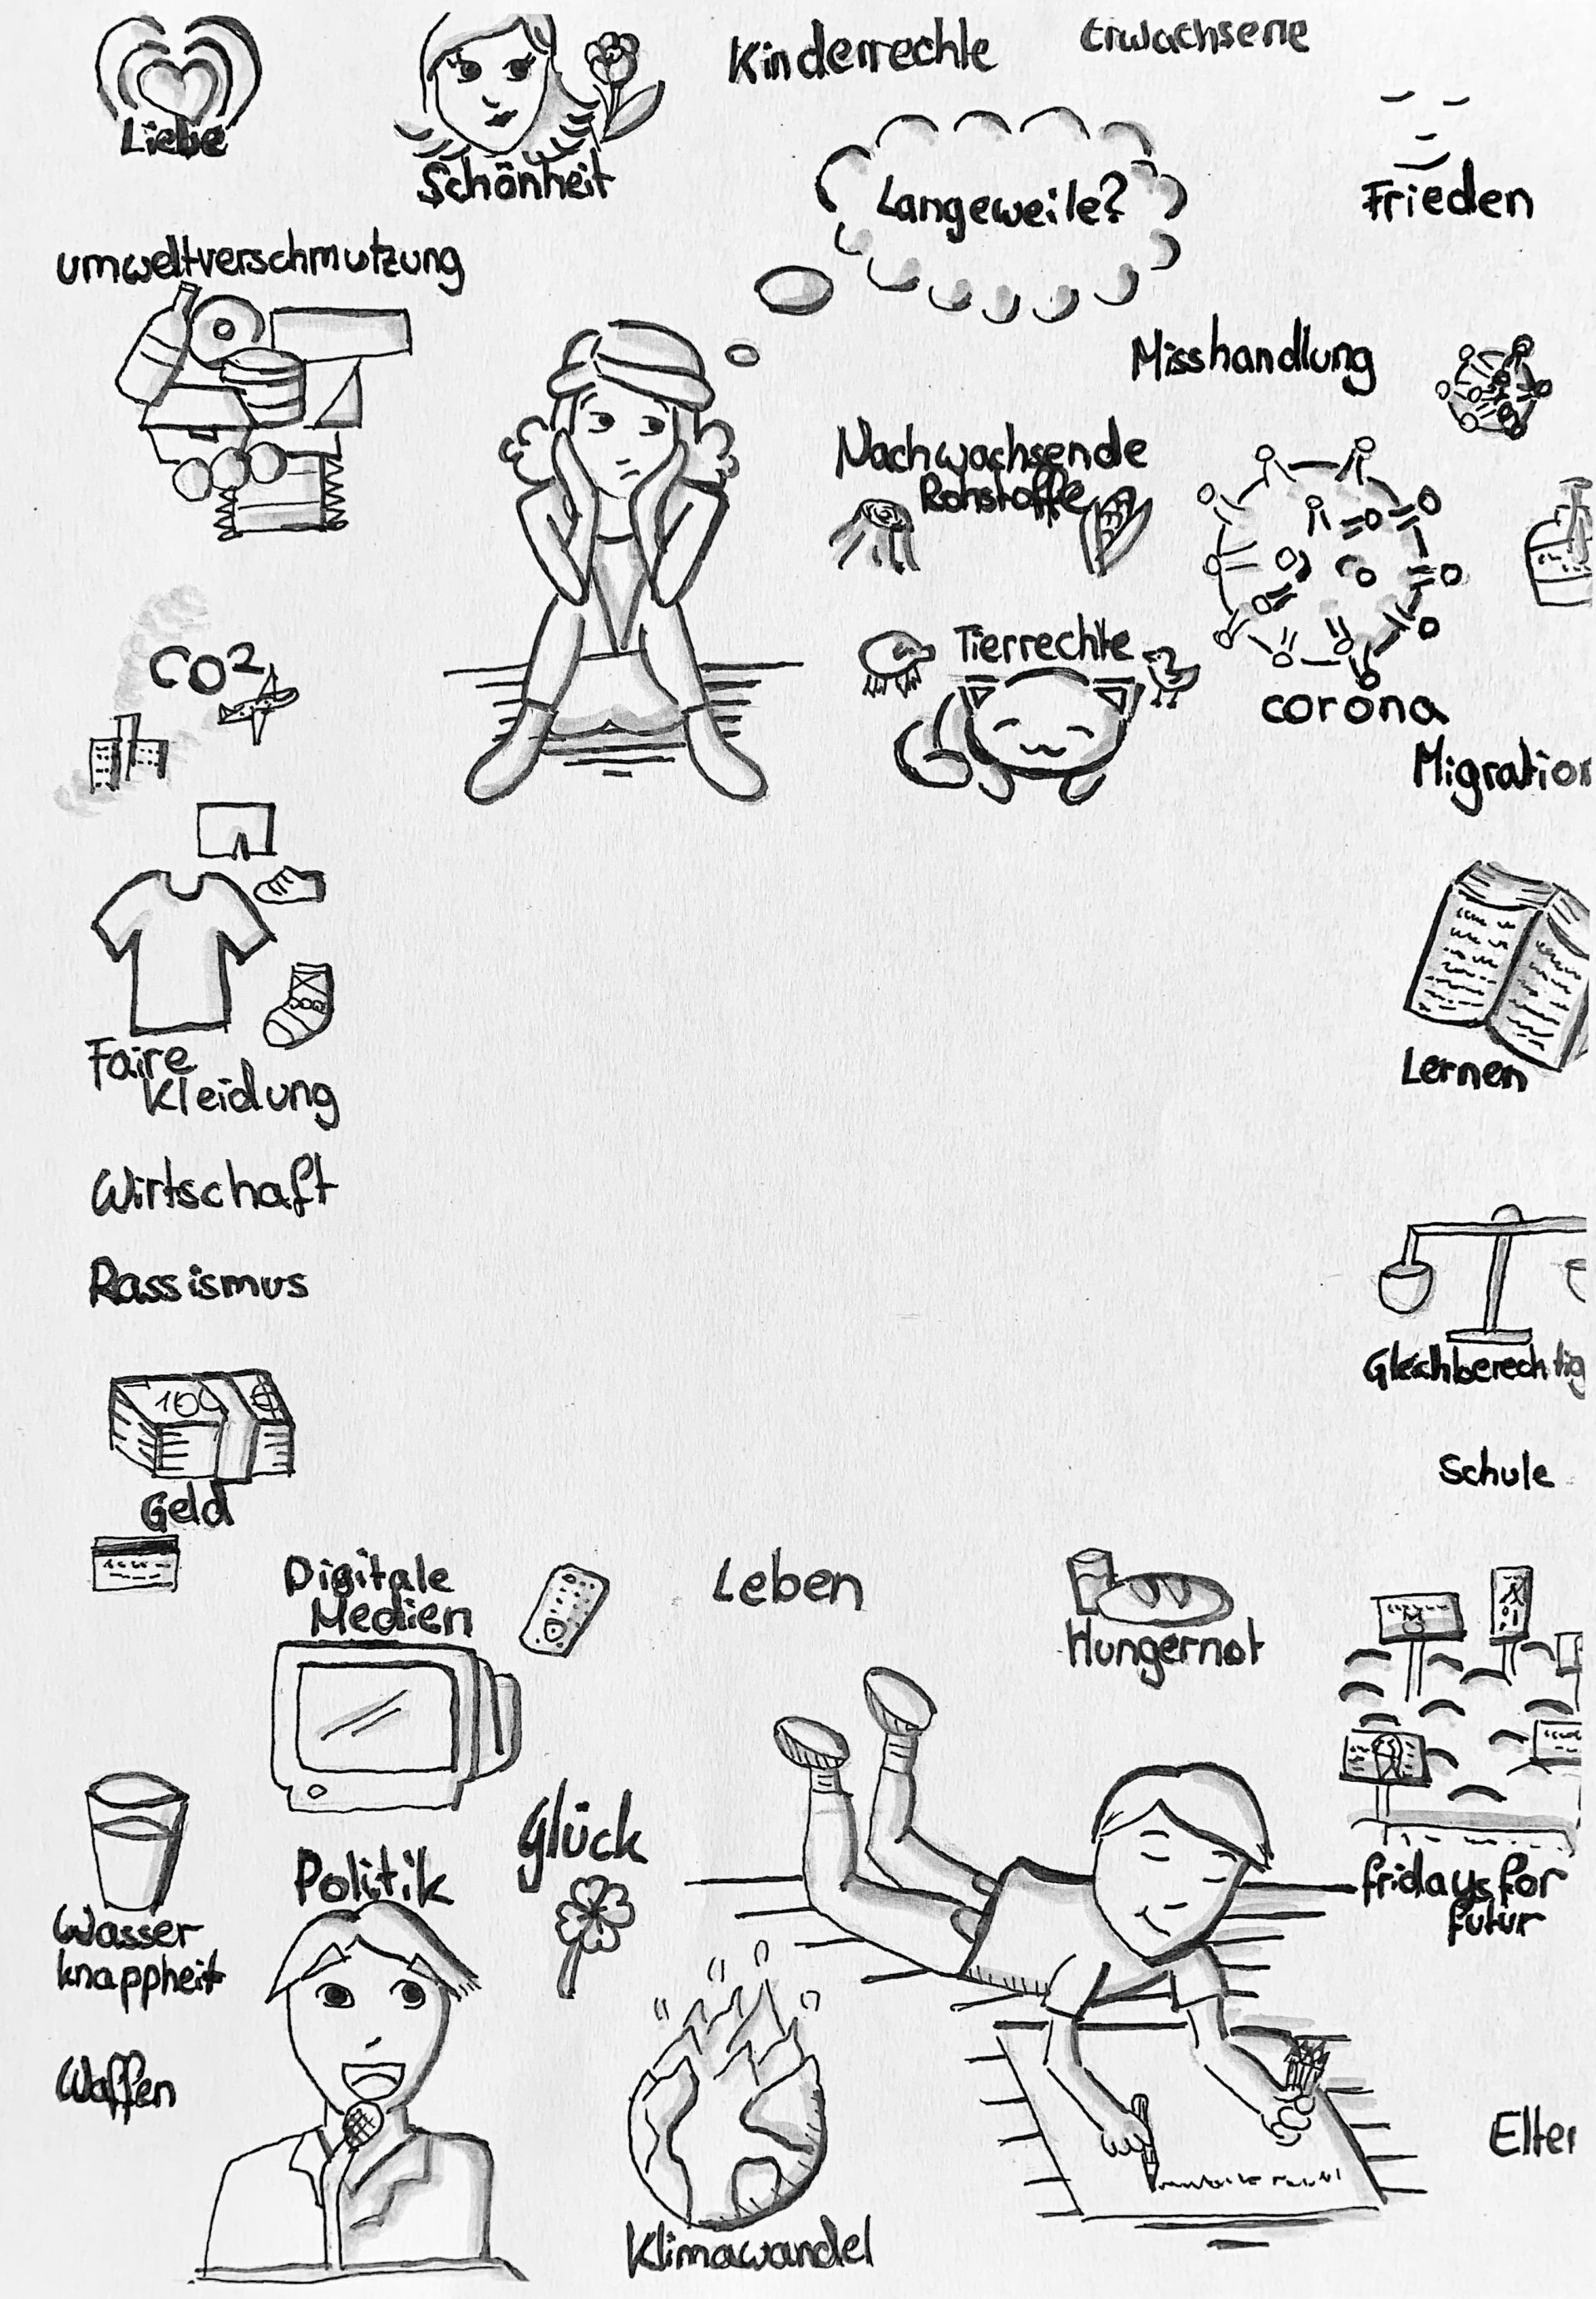 Liebe
Schönheit
Kinderrechte
Erwachsene
Langeweile?
Frieden
umweltverschmutzung
Misshandlung
Nachwachsende
Rohstoffe
Tierrechte
corona
CO2
Migration
Faire
Kleidung
Lernen
Wirtschaft
Rassismus
Gleichberechtig
100
Geld
Schule
Digitale
Medien
Leben
Hungernot
Glück
Politik
fridays for
futur
Wasser
knappheit
Waffen
Elter
Klimawandel